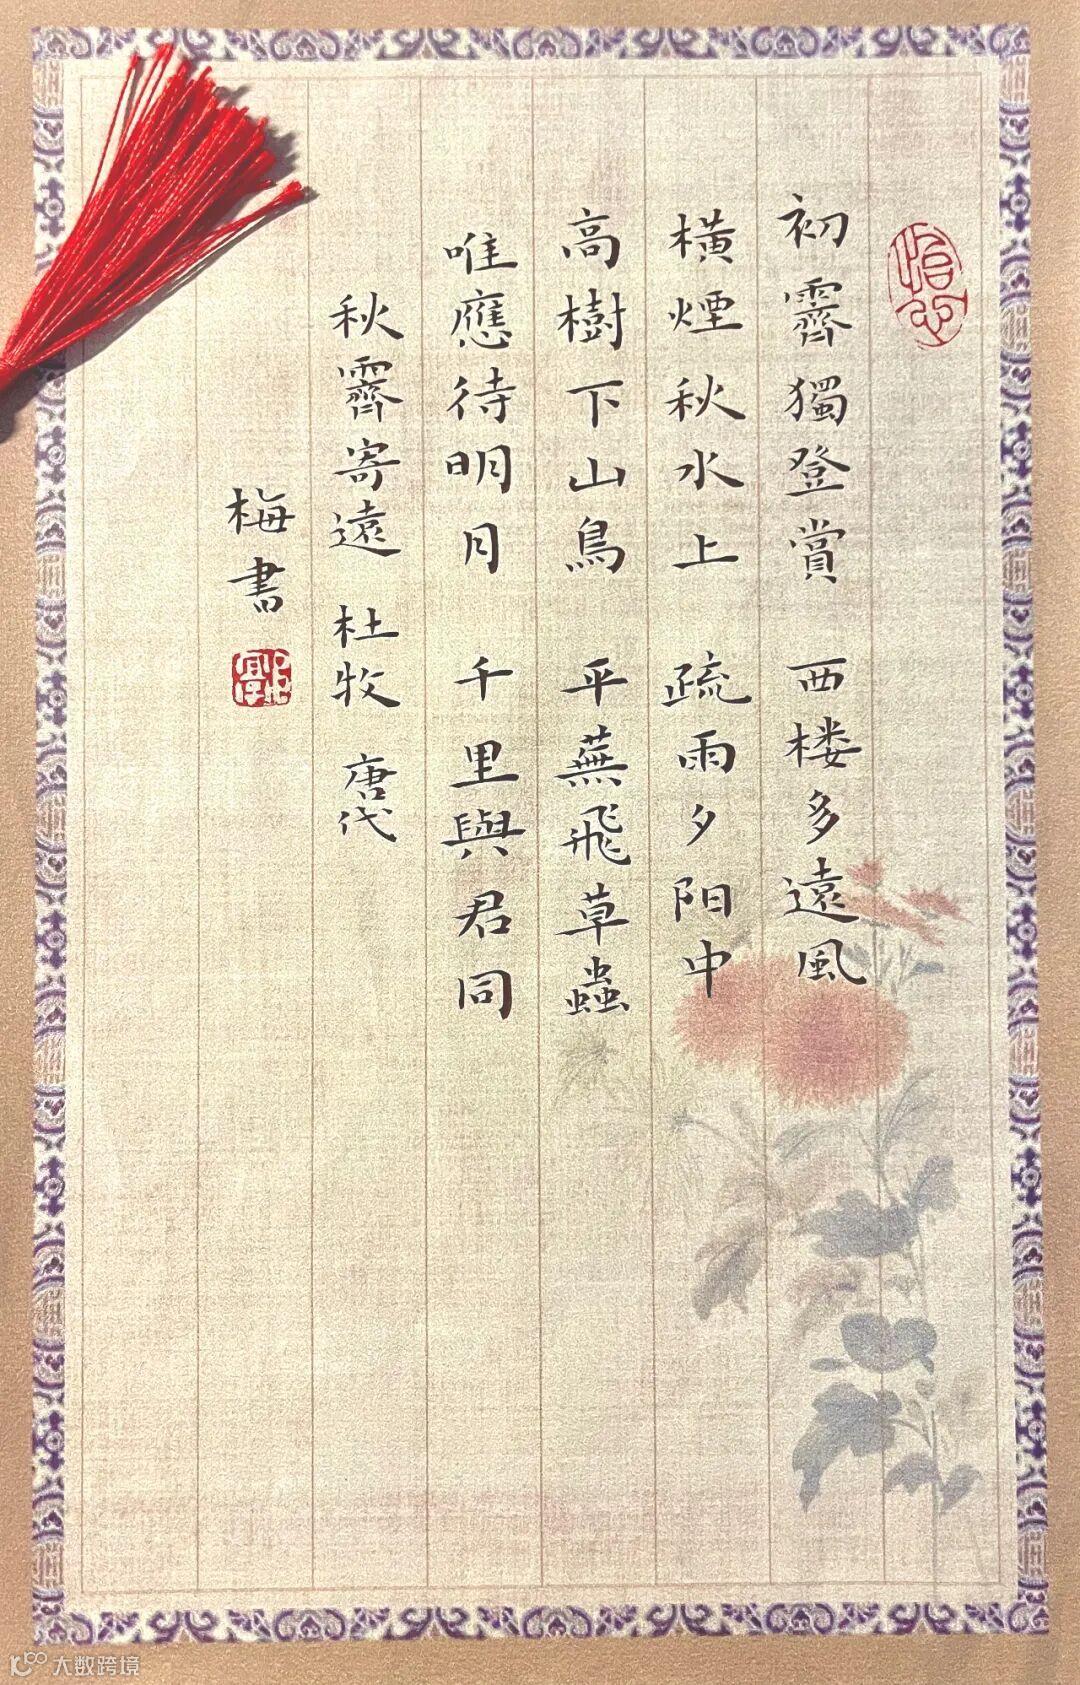 初霽獨登賞 西楼多遠風
橫煙秋水上 疏雨夕阳中
高樹下山鳥 平蕪飛草蟲
唯應待明月 千里與君同
秋霽寄遠 杜牧 唐代
梅書
大数跨境